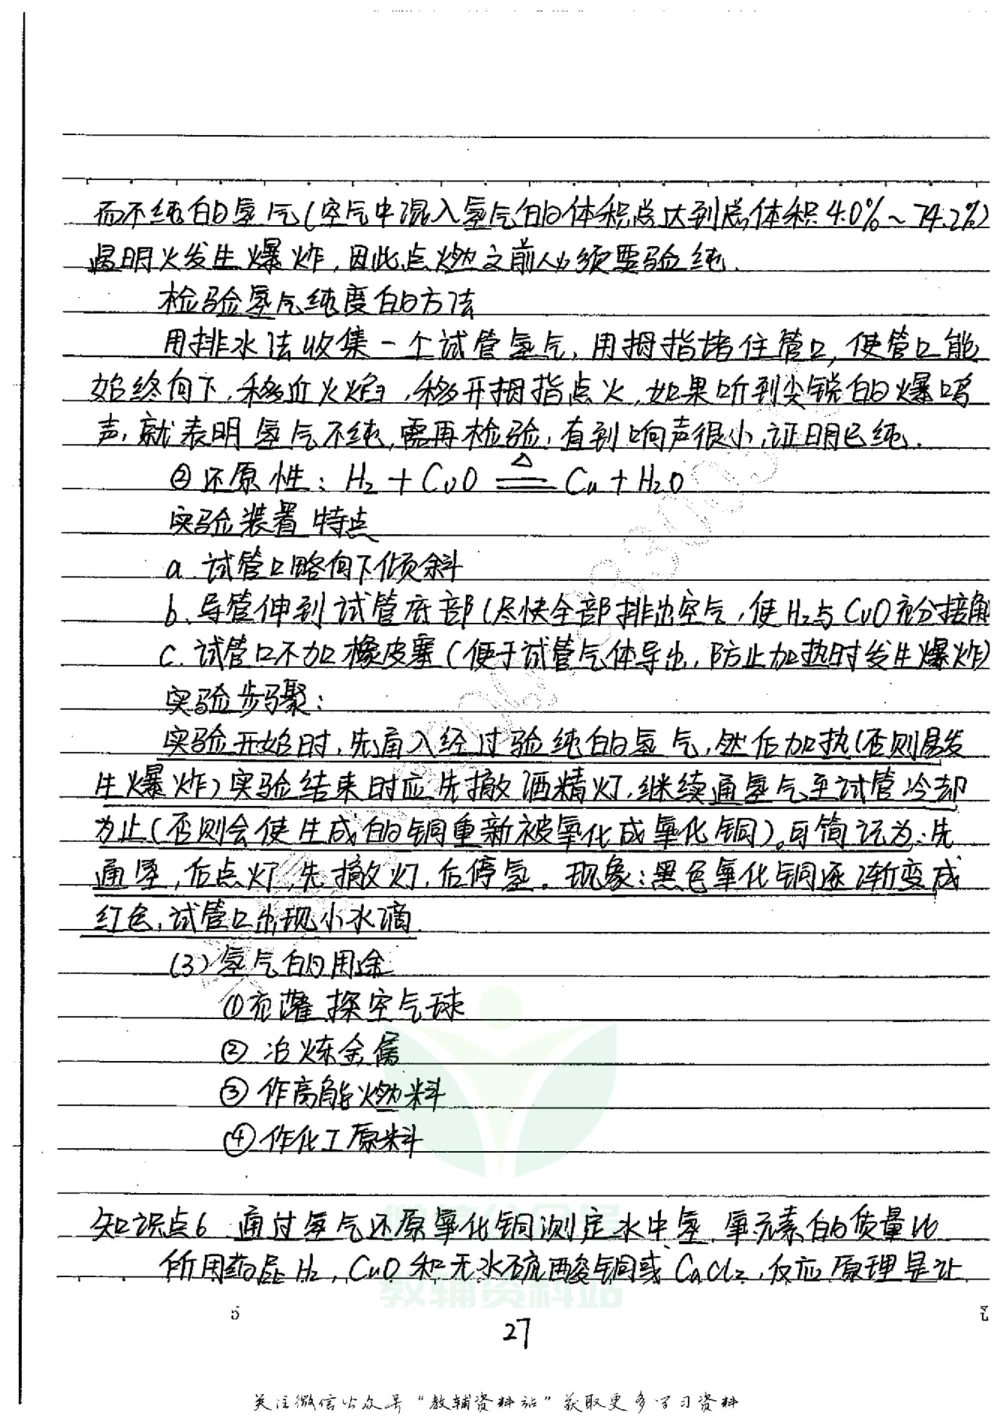 而不纯的氢气(空气中混入氢气的体积总达到总体积4.0%~74.2%)
遇明火发生爆炸,因此点燃之前必须要验纯.
检验氢气纯度的方法
用排水法收集一个试管氢气,用拇指堵住管口,使管口能
始终向下,移近火焰,移开拇指点火,如果听到尖锐的爆鸣
声,就表明氢气不纯,需再检验,直到响声很小,证明已纯.
②还原性:H2+CuO △ Cu+H2O
实验装置特点
a.试管口略向下倾斜
b.导管伸到试管底部(尽快全部排出空气,使H2与CuO充分接触
c.试管口不加橡皮塞(便于试管气体导出,防止加热时发生爆炸)
实验步骤:
实验开始时,先通入经过验纯的氢气,然后加热(否则易发
生爆炸)实验结束时应先撤酒精灯,继续通氢气至试管冷却
为止(否则会使生成的铜重新被氧化成氧化铜)。可简记为:先
通氢,后点灯,先撤灯,后停氢.现象:黑色氧化铜逐渐变成
红色,试管口出现小水滴
(3)氢气的用途
①充灌探空气球
②冶炼金属
③作高能燃料
④作化工原料
知识点6 通过氢气还原氧化铜测定水中氢、氧元素的质量比
所用药品H2,CuO和无水硫酸铜或CaCl2,反应原理是让
教辅资料站
5
27
关注微信公众号"教辅资料站"获取更多学习资料